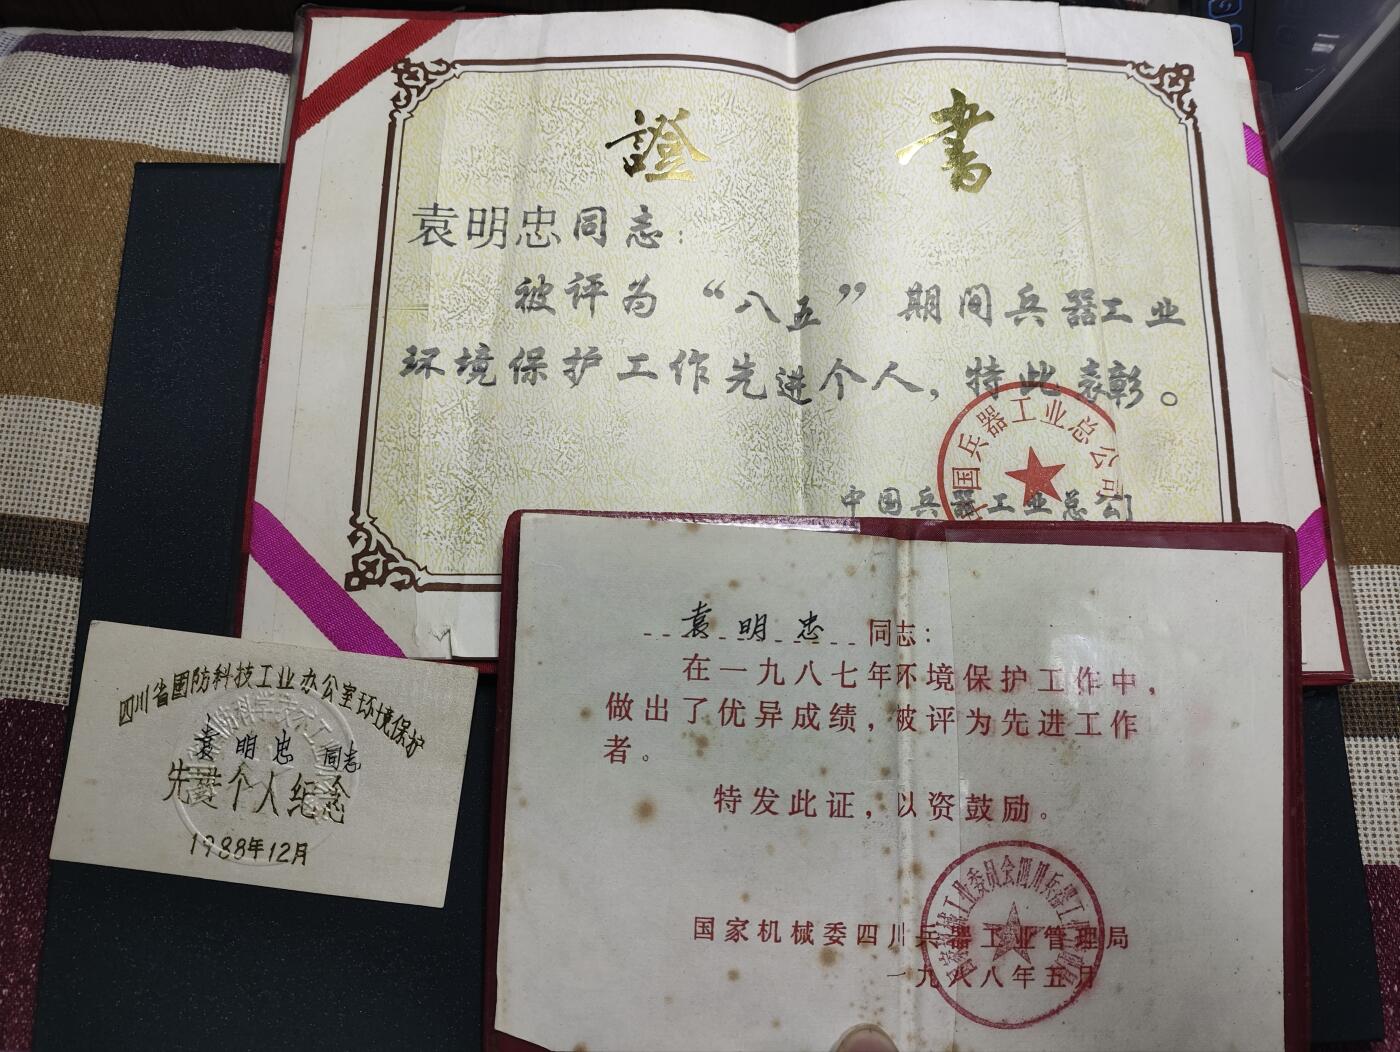 證書
袁明忠同志：
被评为“八五”期间兵器工业
环境保护工作先进个人，特此表彰。
中国兵器工业总公司
中国兵器工业总公司
袁明忠同志：
在一九八七年环境保护工作中，
做出了优异成绩，被评为先进工作
者。
特发此证，以资鼓励。
国家机械委四川兵器工业管理局
一九八八年五月
国家机械工业委员会四川兵器工业管理局
四川省國防科技工业办公室环境保护
袁明忠同志
先进个人纪念
1988年12月